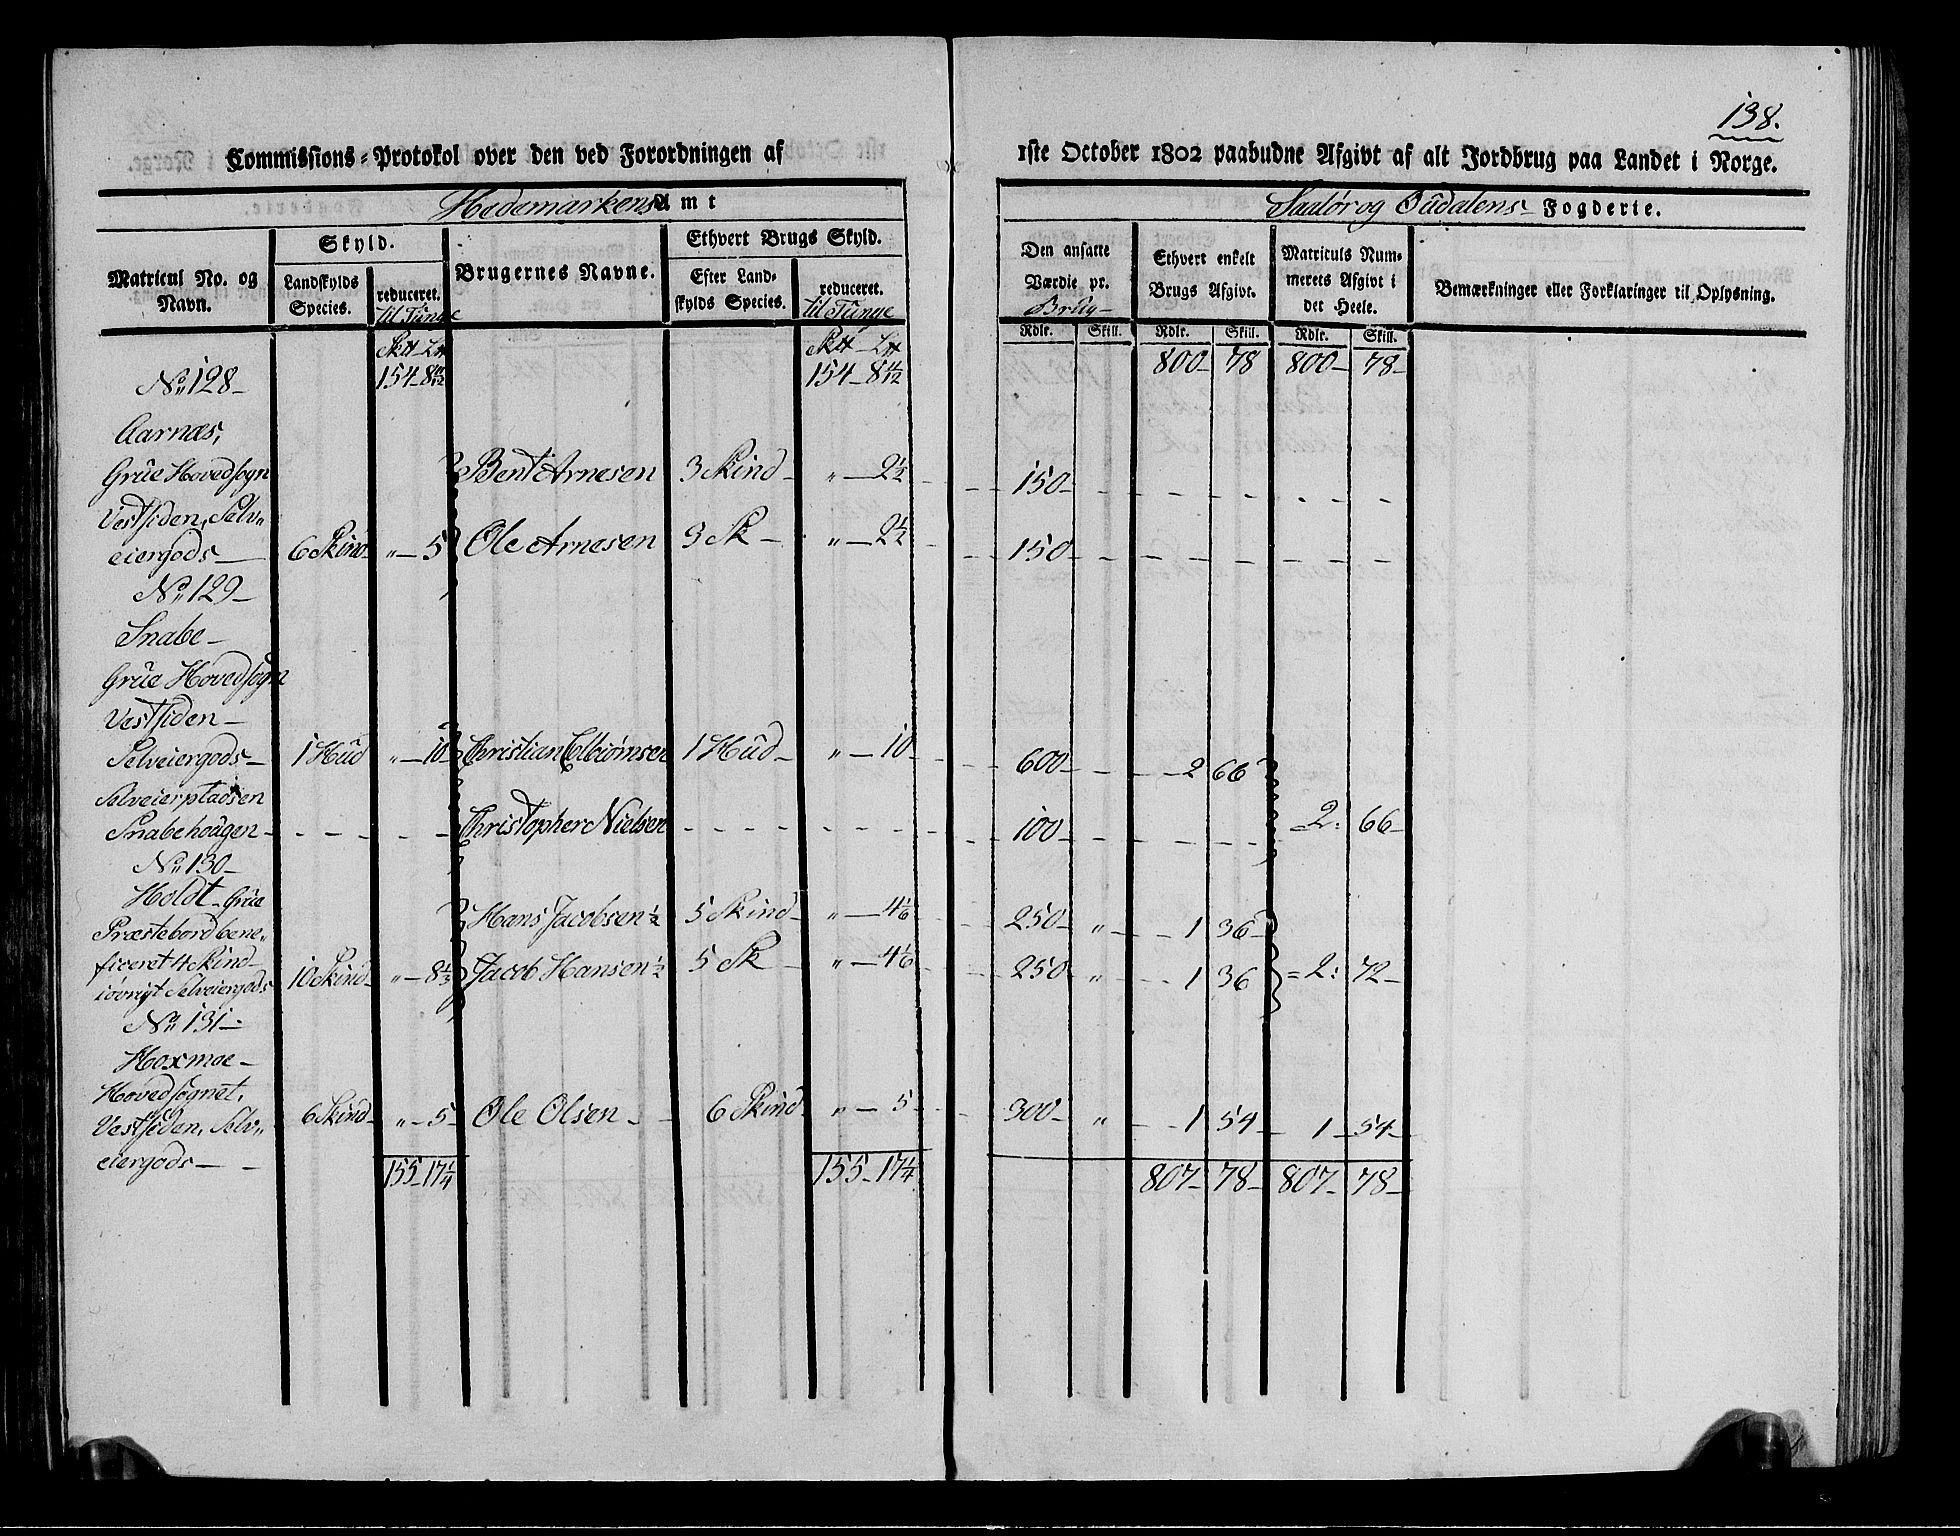 138.
Commissions-Protokol over den ved Forordningen af 1ste October 1802 paabudne Afgivt af alt Jordbrug paa Landet i Norge.
Hedemarkens Amt Soelør og Oudalens Fogderie.
Matricul No. og Navn. Skyld. Brugernes Navne. Ethvert Brugs Skyld. Den ansatte Værdie pr. Brug Ethvert enkelt Brugs Afgivt. Matriculs Nummerets Afgivt i det Heele. Bemærkninger eller Forklaringer til Oplysning.
Landskylds Species. reduceret. til Tunge Efter Landskylds Species. reduceret. til Tunge
Rdlr. Skill. Rdlr. Skill. Rdlr. Skill.
154 - 8 154 - 8 800 - 78 800 - 78 -
No. 128 -
Aarnæs,
Grue Hovedsogn Bent Arnesen 3 Skind - " - 2½ 150 -
Vestsiden, Selv-
eiergods - 6 Skind - " - 5 Ole Arnesen 3 Sk - " - 2½ 150 -
No. 129 -
Snabe -
Grue Hovedsogn
Vestsiden -
Selveiergods - 1 Hud " - 10 Christian Elbiørnsen 1 Hud - " - 10 600 - 2 66
Selveierpladsen
Snabehougen - Christopher Nielsen 100 - 2: 66 -
No. 130 -
Holdt - Grue
Præstebord bene- Hans Jacobsen ½ 5 Skind - " - 4⅙ 250 " 1 36
ficeret 4 Skind - 10 Skind - " - 8⅓ Jacob Hansen ½ 5 Sk - " - 4⅙ 250 " 1 36 = 2: 72 -
iøvrigt Selveiergods
No. 131 -
Hoxmoe -
Hovedsognet,
Vestsiden, Selv- 6 Skind - " - 5 - Ole Olsen - 6 Skind - " - 5 300 - " 1 54 1 - 54 -
eiergods -
155 - 17¼ 155 - 17¼ 807 - 78 - 807 - 78 -